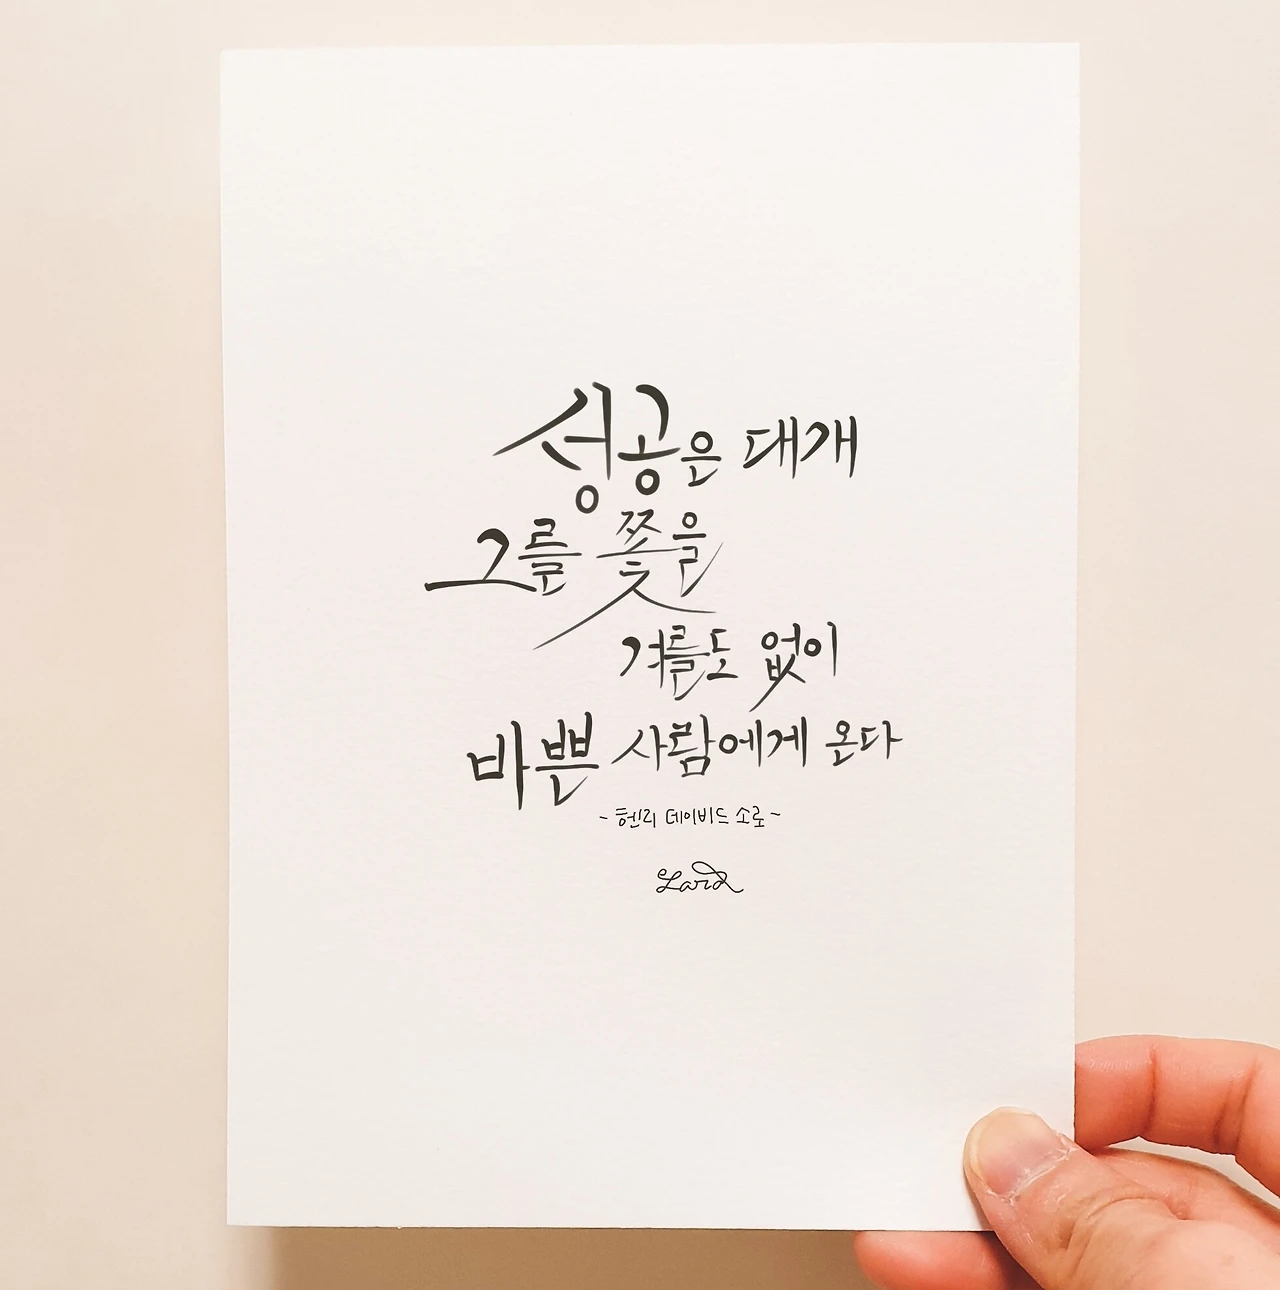 성공은 대개
그를 쫓을
겨를도 없이
바쁜 사람에게 온다
- 헨리 데이비드 소로 -